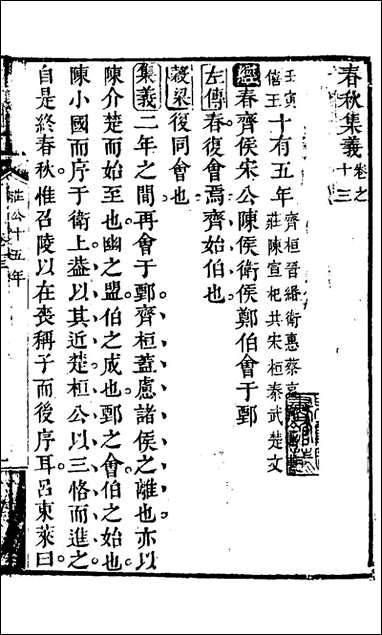 春秋集義卷之十三
壬寅僖王十有五年齊桓晉緡衛惠蔡哀莊陳宣杞共宋桓秦武楚文
經春齊侯宋公陳侯衛侯鄭伯會于鄄
左傳春復會焉齊始伯也
穀梁復同會也
集義二年之間再會于鄄齊桓蓋慮諸侯之離也亦以
陳介楚而始至也幽之盟伯之成也鄄之會伯之始也
陳小國而序于衛上葢以其近楚桓公以三恪而進之
自是終春秋惟召陵以在喪稱子而後序耳呂東萊曰
莊公十五年